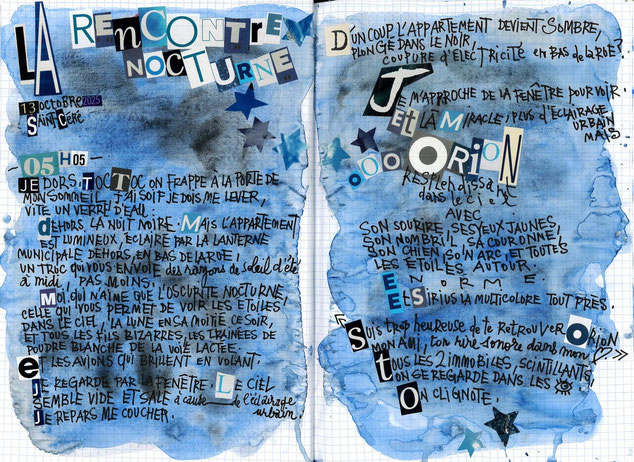 LA RENCONTRE
NOCTURNE
13 octobre 2025
SAINT-CÉRÉ
— 05H05 —
JE DORS, TOC TOC, ON FRAPPE À LA PORTE DE
MON SOMMEIL J'AI SOIF JE DOIS ME LEVER,
VITE UN VERRE D'EAU.
dEHORS, LA NUIT NOIRE. MAIS L'APPARTEMENT
EST LUMINEUX, ÉCLAIRÉ PAR LA LANTERNE
MUNICIPALE DEHORS, EN BAS DE LA RUE,
UN TRUC QUI VOUS ENVOIE des rayons de soleil d'été
à midi, PAS MOINS.
MOI, QUI N'AIME QUE L'OBSCURITÉ NOCTURNE,
CELLE QUI VOUS PERMET DE VOIR LES ÉTOILES
DANS LE CIEL, LA LUNE EN SA MOITIÉ CE SOIR,
ET TOUS LES FILS BIZARRES, LES TRAÎNÉES DE
POUDRE BLANCHE DE LA VOIE LACTÉE.
eT LES AVIONS QUI BRILLENT EN VOLANT.
JE REGARDE PAR LA FENÊTRE. LE CIEL
SEMBLE VIDE ET SALE à cause de l'éclairage
urbain.
JE REPARS ME COUCHER.
D'UN COUP L'APPARTEMENT DEVIENT SOMBRE,
PLONGÉ DANS LE NOIR,
COUPURE d'ELECTRICITÉ en BAS de la RUE?
JE M'APPROCHE DE LA FENÊTRE POUR VOIR.
Et LÀ MIRACLE, PLUS d'ÉCLAIRAGE
URBAIN
MAIS
oooO ORION
RESPLENDISSANT
dans le ciel
AVEC
SON SOURIRE, SES YEUX JAUNES,
SON NOMBRIL, SA COURONNE,
SON CHIEN, SON ARC, ET TOUTES
LES ÉTOILES AUTOUR.
ÉNORME
Et SIRIUS LA MULTICOLORE TOUT PRÈS.
Suis trop heureuse de te RETROUVER ORION
MON AMI, ton rire sonore dans mon ♡
TOUS LES 2 IMMOBILES, SCINTILLANTS,
ON SE REGARDE DANS LES 👁
ON CLIGNOTE.